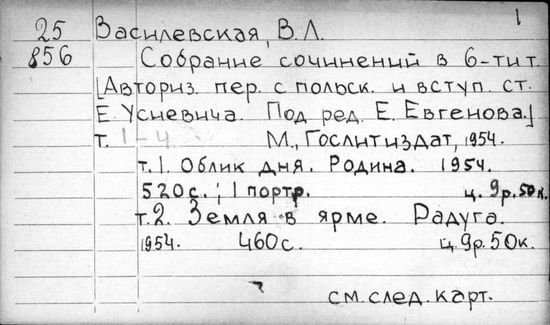 1
25 Василевская, В.Л.
856 Собрание сочинений в 6-ти т.
[Авториз. пер. с польск. и вступ. ст.
Е. Усиевича. Под ред. Е. Евгенова.]
т. 1-4 М., Гослитиздат, 1954.
т.1. Облик дня. Родина. 1954.
520с.; 1 портр. ц. 9р.50к.
т.2. Земля в ярме. Радуга.
1954. 460с. ц. 9р.50к.
см. след. карт.